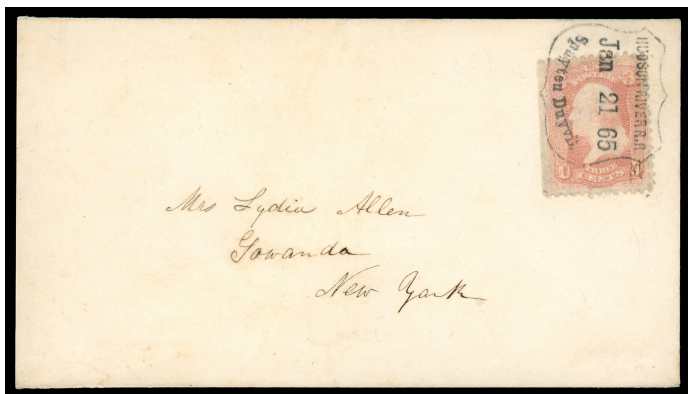 HUDSON RIVER R.R
Jan 21 65
Spuyten Duyvil
U.S.
POSTAGE
THREE
CENTS
Mrs Lydia Allen
Gowanda
New York